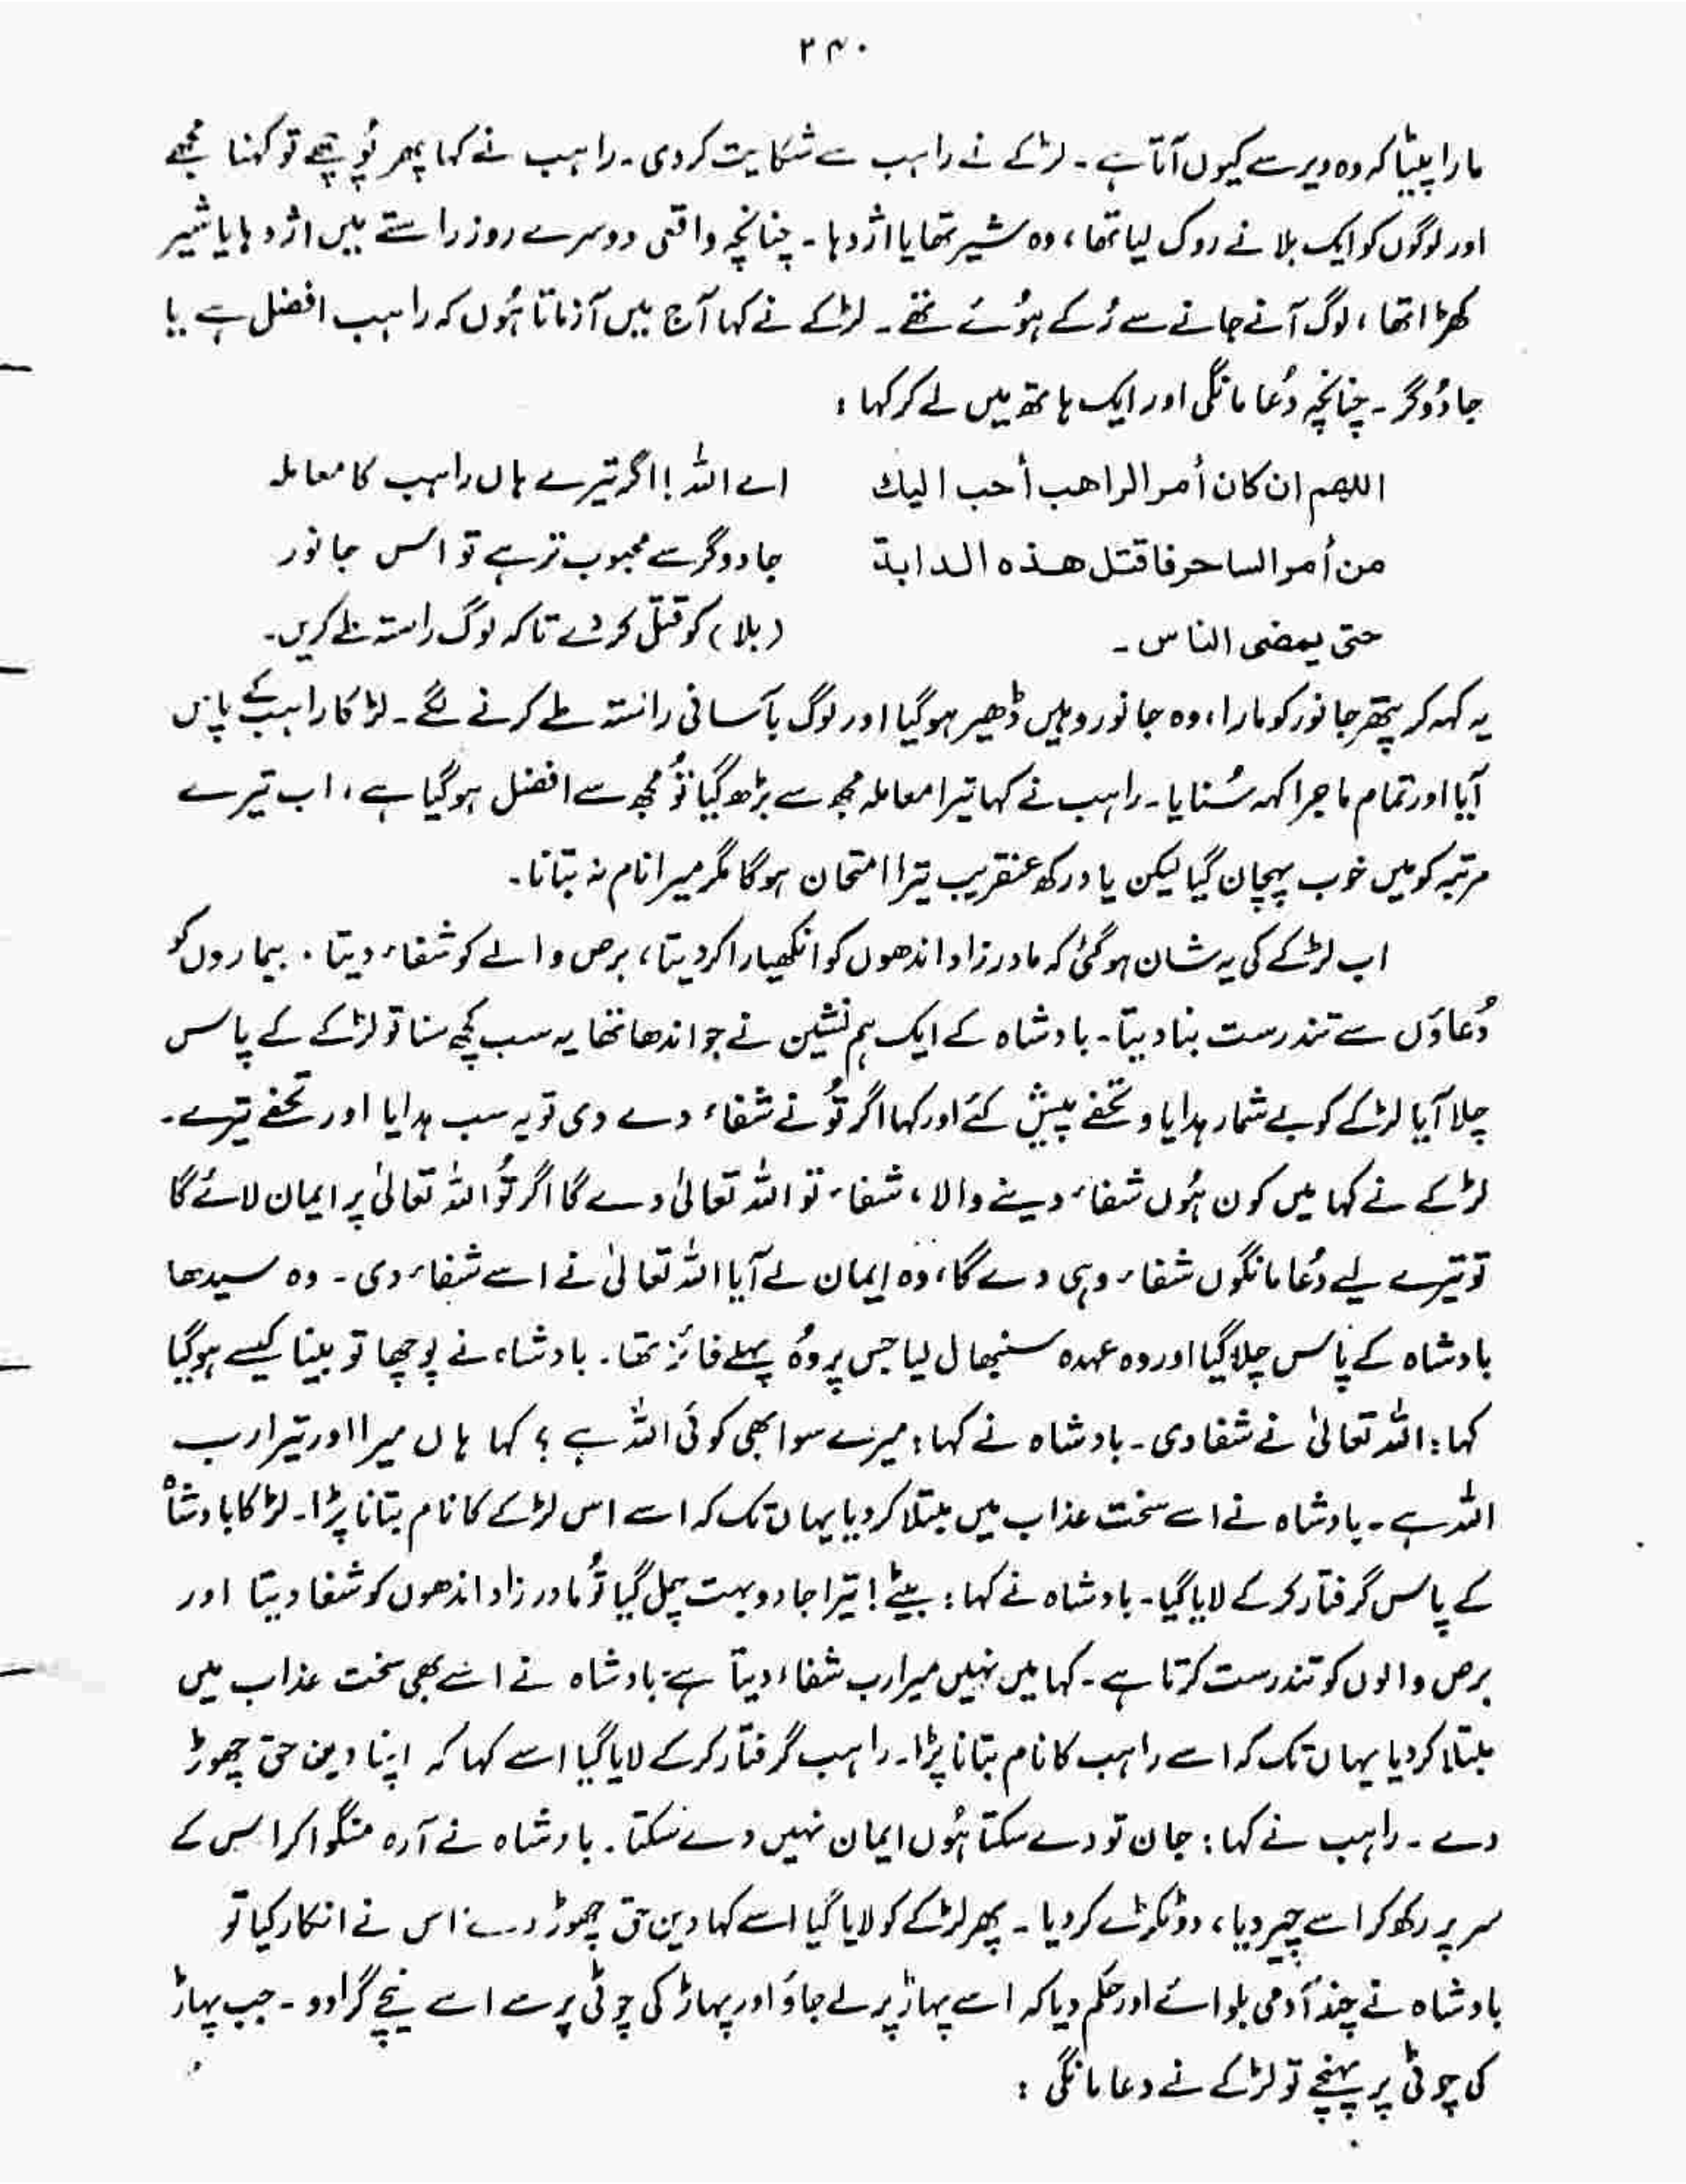 ۲۴۰
مارا پیٹا کہ وہ دیر سے کیوں آتا ہے۔ لڑکے نے راہب سے شکایت کردی۔ راہب نے کہا پھر پُوچھے تو کہنا مجھے
اور لوگوں کو ایک بلا نے روک لیا تھا، وہ شیر تھا یا اژدہا۔ چنانچہ واقعی دوسرے روز راستے میں اژدہا یا شیر
کھڑا تھا، لوگ آنے جانے سے رُکے ہوئے تھے۔ لڑکے نے کہا آج میں آزماتا ہُوں کہ راہب افضل ہے یا
جادُوگر۔ چنانچہ دُعا مانگی اور ایک ہاتھ میں لے کر کہا :
اللهم ان كان أمر الراهب أحب اليك
من أمر الساحر فاقتل هذه الدابة
حتى يمضى الناس ۔
اے اللہ ! اگر تیرے ہاں راہب کا معاملہ
جادوگر سے محبوب تر ہے تو اس جانور
(بلا) کو قتل کر دے تاکہ لوگ راستہ طے کریں۔
یہ کہہ کر پتھر جانور کو مارا، وہ جانور وہیں ڈھیر ہوگیا اور لوگ بآسانی راستہ طے کرنے لگے۔ لڑکا راہب کے پاس
آیا اور تمام ماجرا کہہ سُنایا۔ راہب نے کہا تیرا معاملہ مجھ سے بڑھ گیا تُو مجھ سے افضل ہوگیا ہے، اب تیرے
مرتبہ کو میں خوب پہچان گیا لیکن یاد رکھ عنقریب تیرا امتحان ہوگا مگر میرا نام نہ بتانا۔
اب لڑکے کی یہ شان ہوگئی کہ مادرزاد اندھوں کو انکھیارا کردیتا، برص والے کو شفاء دیتا ۔ بیماروں کو
دُعاؤں سے تندرست بنا دیتا۔ بادشاہ کے ایک ہم نشین نے جو اندھا تھا یہ سب کچھ سنا تو لڑکے کے پاس
چلا آیا لڑکے کو بے شمار ہدایا و تحفے پیش کئے اور کہا اگر تُو نے شفاء دے دی تو یہ سب ہدایا اور تحفے تیرے۔
لڑکے نے کہا میں کون ہُوں شفاء دینے والا، شفاء تو اللہ تعالیٰ دے گا اگر تُو اللہ تعالیٰ پر ایمان لائے گا
تو تیرے لیے دُعا مانگوں شفاء وہی دے گا، وہ ایمان لے آیا اللہ تعالیٰ نے اسے شفاء دی۔ وہ سیدھا
بادشاہ کے پاس چلا گیا اور وہ عہدہ سنبھال لیا جس پر وہُ پہلے فائز تھا۔ بادشاہ نے پوچھا تو بینا کیسے ہوگیا
کہا : اللہ تعالیٰ نے شفا دی۔ بادشاہ نے کہا : میرے سوا بھی کوئی اللہ ہے ؟ کہا ہاں میرا اور تیرا رب
اللہ ہے۔ بادشاہ نے اسے سخت عذاب میں مبتلا کردیا یہاں تک کہ اسے اس لڑکے کا نام بتانا پڑا۔ لڑکا بادشاہ
کے پاس گرفتار کرکے لایا گیا۔ بادشاہ نے کہا : بیٹے ! تیرا جادو بہت چل گیا تُو مادر زاد اندھوں کو شفا دیتا اور
برص والوں کو تندرست کرتا ہے۔ کہا میں نہیں میرا رب شفاء دیتا ہے۔ بادشاہ نے اسے بھی سخت عذاب میں
مبتلا کردیا یہاں تک کہ اسے راہب کا نام بتانا پڑا۔ راہب گرفتار کرکے لایا گیا اسے کہا کہ اپنا دین حق چھوڑ
دے۔ راہب نے کہا : جان تو دے سکتا ہُوں ایمان نہیں دے سکتا ۔ بادشاہ نے آرہ منگوا کر اس کے
سر پر رکھ کر اسے چیر دیا، دو ٹکڑے کر دیا۔ پھر لڑکے کو لایا گیا اسے کہا دین حق چھوڑ دے۔ اس نے انکار کیا تو
بادشاہ نے چند آدمی بلوائے اور حکم دیا کہ اسے پہاڑ پر لے جاؤ اور پہاڑ کی چوٹی پر سے اسے نیچے گرا دو۔ جب پہاڑ
کی چوٹی پر پہنچے تو لڑکے نے دعا مانگی :